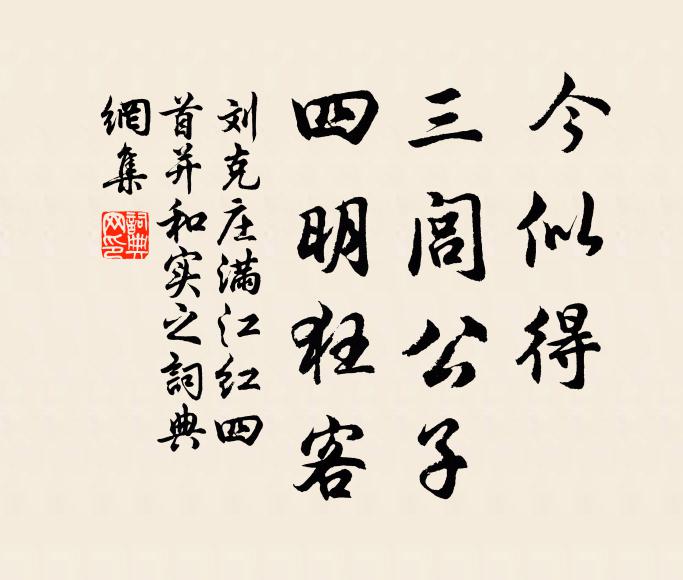 今似得
三闾公子
四明狂客
刘克庄满江红四
首并和实之詞典
網集
詞典网印